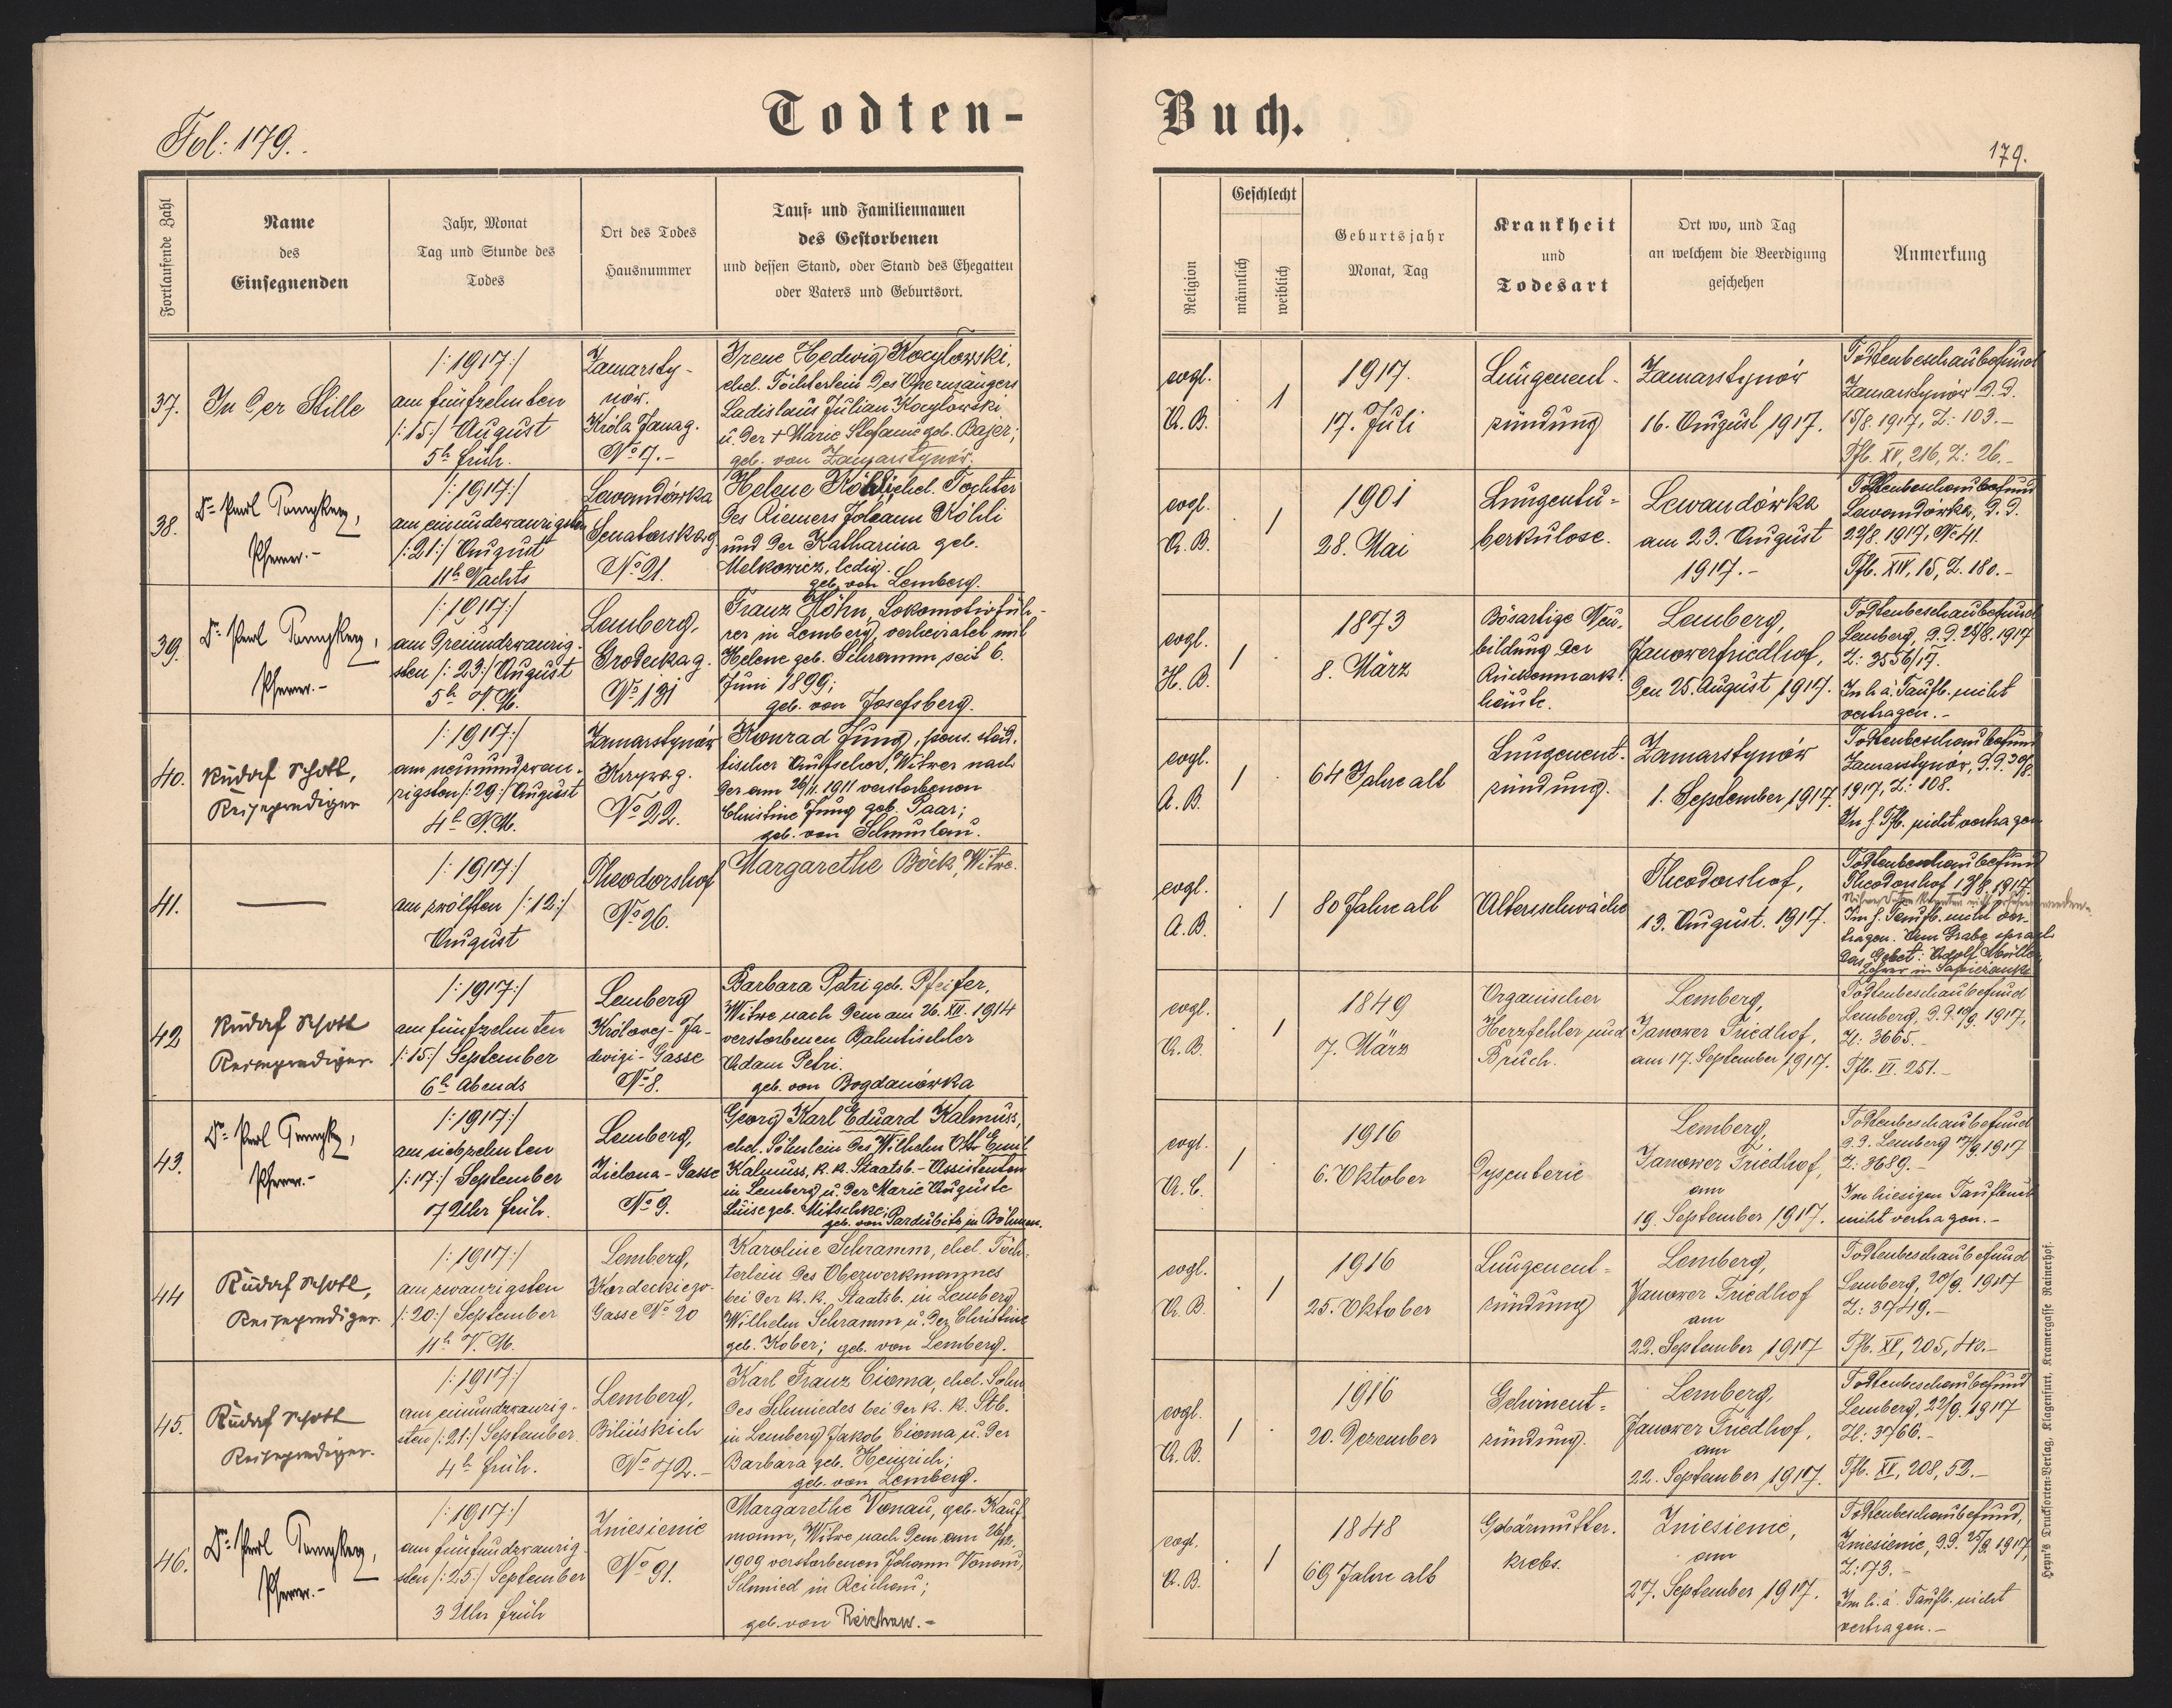 Fol: 179.
Todten-
Buch.
179.
Fortlaufende Zahl
Name
des
Einsegnenden
Jahr, Monat
Tag und Stunde des
Todes
Ort des Todes
Hausnummer
Tauf- und Familiennamen
des Gestorbenen
und dessen Stand, oder Stand des Ehegatten
oder Vaters und Geburtsort.
Religion
Geschlecht
männlich
weiblich
Geburtsjahr
Monat, Tag
Krankheit
und
Todesart
Ort wo, und Tag
an welchem die Beerdigung
geschehen
Anmerkung
37.
In der Stille
/:1917:/
am fünfzehnten
/:15:/ August
5h früh.
Zamarsty-
nów.
Króla Janag.
No 7.-
Irene Hedwig Kocylowski,
ehel. Töchterlein des Opernsängers
Ladislaus Julian Kocylowski
u. der + Marie Stefanie geb. Bajer;
geb. von Zamarstynów.
evgl.
A. B.
1
1917.
17. Juli
Lungenent-
zündung
Zamarstynów
16. August 1917.
Todtenbeschaubefund
Zamarstynów d. d.
15/8. 1917, Z: 103.-
Tfb. XV, 216, Z: 26.-
38.
Dr. Paul
Pfarrer.-
/:1917:/
am einundzwanzigsten
/:21:/ August
11h Nachts
Lewandówka
Senatorskag
No 21.
Helene Köhli ehel. Tochter
des Riemers Johann Köhli
und der Katharina geb.
Melkowicz, ledig.
geb. von Lemberg.
evgl.
A. B.
1
1901
28. Mai
Lungentu-
berkulose.
Lewandówka
am 23. August
1917.-
Todtenbeschaubefund
Lewandówka, d. d.
22/8. 1917, No 41.
Tfb. XIV, 15, Z. 180.-
39.
Dr. Paul
Pfarrer.-
/:1917:/
am dreiundzwanzig-
sten /:23:/ August
5h N. M.
Lemberg,
Grodeckag.
No 131
Franz Höhn, Lokomotivfüh-
rer in Lemberg, verheiratet mit
Helene geb. Schramm, seit 6.
Juni 1899;
geb. von Josefsberg.
evgl.
H. B.
1
1873
8. März
Bösartige Neu-
bildung der
Rückenmark-
häute.
Lemberg,
Janowerfriedhof,
den 25. August 1917.
Todtenbeschaubefund
Lemberg, d. d. 25/8. 1917
Z: 3556/17.
In h. ä. Taufb. nicht
vertragen.-
40.
Rudolf Schott,
Reiseprediger
/:1917:/
am neunundzwan-
zigsten /:29:/ August
4h N. M.
Zamarstynów
Krzywag.
No 22.
Konrad Jung, pens. städ-
tischer Aufseher, Witwer nach
der am 26/11. 1911 verstorbenen
Christine Jung geb. Saar;
geb. von Schumlau.
evgl.
A. B.
1
64 Jahre alt
Lungenent-
zündung.
Zamarstynów
1. September 1917.
Todtenbeschaubefund
Zamarstynów, d. d. 30/8.
1917, Z: 108.
In h. Tfb. nicht vertragen
41.
/:1917:/
am zwölften /:12:/
August
Theodorshof
No 26.
Margarethe Böck, Witwe.
evgl.
A. B.
1
80 Jahre alt
Altersschwäche
Theodorshof,
13. August. 1917.
Todtenbeschaubefund
Theodorshof 13/8. 1917.
Nähere Daten konnten nicht werden.
Im h. Taufb. nicht ver-
tragen. Am Grabe sprach
das Gebet: Adolf Müller,
Lehrer in Sapieżanka
42
Rudolf Schott
Reiseprediger.
/:1917:/
am fünfzehnten
/:15:/ September
6h Abends
Lemberg
Królowej-Ja-
dwigi-Gasse
No 8.
Barbara Petri geb. Pfeifer,
Witwe nach dem am 26. XII. 1914
verstorbenen Bahntischler
Adam Petri.
geb. von Bogdanówka
evgl.
A. B.
1
1849
7. März
Organischer
Herzfehler und
Bruch.
Lemberg,
Janower Friedhof,
am 17. September 1917.
Todtenbeschaubefund
Lemberg, d. d. 17/9. 1917,
Zl: 3665.-
Tfb. VI. 251.-
43.
Dr. Paul
Pfarrer.-
/:1917:/
am siebzehnten
/:17:/ September
7 Uhr früh.
Lemberg,
Zielona-Gasse
No 9.
Georg Karl Eduard Kalmuss,
ehel. Söhnlein des Wilhelm Otto Emil
Kalmuss, k. k. Staatsb.-Assistenten
in Lemberg u. der Marie Auguste
Luise geb. Mitschke;
geb. von Pardubitz in Böhmen.
evgl.
A. C.
1
1916
6. Oktober
Dysenterie
Lemberg,
Janower Friedhof,
am
19. September 1917.
Todtenbeschaubefund
d. d. Lemberg 17/9. 1917
Z: 3689.-
Im hiesigen Taufbuch
nicht vertragen.-
44
Rudolf Schott,
Reiseprediger.
/:1917:/
am zwanzigsten
/:20:/ September
11h V. M.
Lemberg,
Kordeckiego-
Gasse No 20
Karoline Schramm, ehel. Töch-
terlein des Oberwerkmannes
bei der k. k. Staatsb. in Lemberg
Wilhelm Schramm u. der Christine
geb. Kober; geb. von Lemberg.
evgl.
A. B.
1
1916
25. Oktober
Lungenent-
zündung
Lemberg,
Janower Friedhof
am
22. September 1917
Todtenbeschaubefund
Lemberg, 20/9. 1917
Z: 3749.-
Tfb. XV, 205, 40.-
45.
Rudolf Schott
Reiseprediger.
/:1917:/
am einundzwanzig-
sten /:21:/ September
4h früh.
Lemberg,
Bilińskich
No 72.-
Karl Franz Cioma, ehel. Sohn
des Schmiedes bei der k. k. Stb.
in Lemberg Jakob Cioma u. der
Barbara geb. Heinrich;
geb. von Lemberg.
evgl.
A. B.
1
1916
20. Dezember
Gehirnent-
zündung.
Lemberg,
Janower Friedhof,
am
22. September 1917.
Todtenbeschaubefund
Lemberg, 22/9. 1917
Zl: 3766.-
Tfb. XV, 208, 52.-
46.
Dr. Paul
Pfarrer.-
/:1917:/
am fünfundzwanzig-
sten /:25:/ September
3 Uhr früh
Zniesienie
No 91.
Margarethe Vonau, geb. Kauf-
mann, Witwe nach dem am 26/12.
1909 verstorbenen Johann Vonau,
Schmied in Reichau;
geb. von Reichau.-
evgl.
A. B.
1
1848
69 Jahre alt
Gebärmutter-
krebs.
Zniesienie,
am
27. September 1917.
Todtenbeschaubefund,
Zniesienie, d. d. 25/9. 1917,
Z: 173.-
Im h. ä. Taufb. nicht
vertragen.-
Heyn's Drucksorten-Verlag, Klagenfurt, Kramergasse Rainerhof.